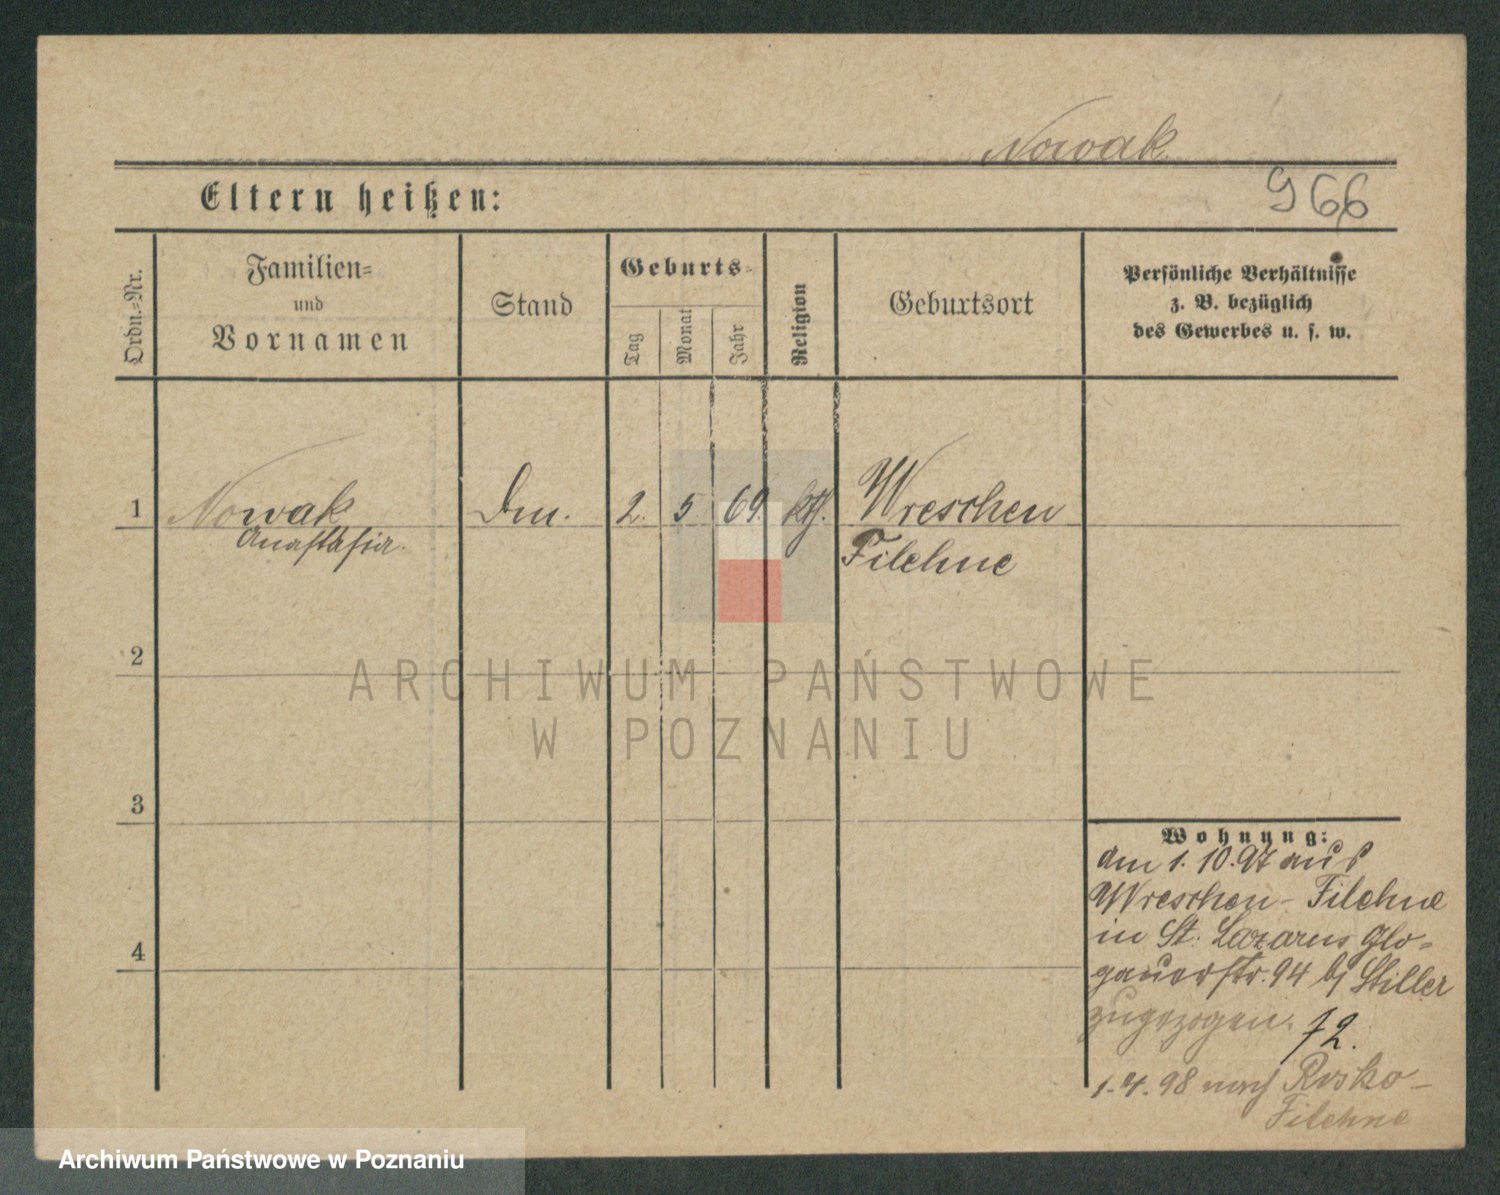 Nowak
Eltern heißen:
966
Ordn.-Nr.
Familien-
und
Vornamen
Stand
Geburts-
Tag
Monat
Jahr
Religion
Geburtsort
Persönliche Verhältnisse
z. B. bezüglich
des Gewerbes u. s. w.
1
Nowak
Anastasia.
2. 5 69. kth.
Wreschen
Filehne
2
ARCHIWUM PAŃSTWOWE
W POZNANIU
3
4
Wohnung:
den 1. 10. 97 aus
Wreschen-Filehne
in St. Lazarus Glo-
gauerstr. 94 bj Stiller
zugezogen.
1. 4. 98 nach Rosko-
Filehne
Archiwum Państwowe w Poznaniu